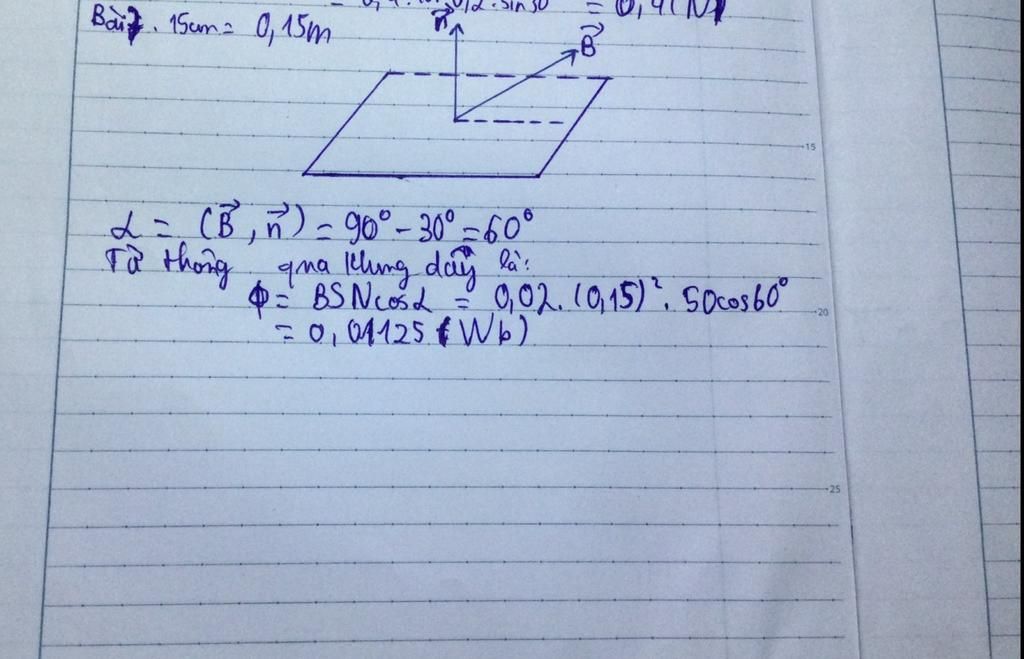 .sin30 = 0,4(N)
Bài 7. 15cm = 0,15m
n⃗
B⃗
15
α = (B⃗, n⃗) = 90° - 30° = 60°
Từ thông qua khung dây là:
Φ = BSNcosα = 0,02.(0,15)². 50cos60°
20
= 0,01125 (Wb)
25